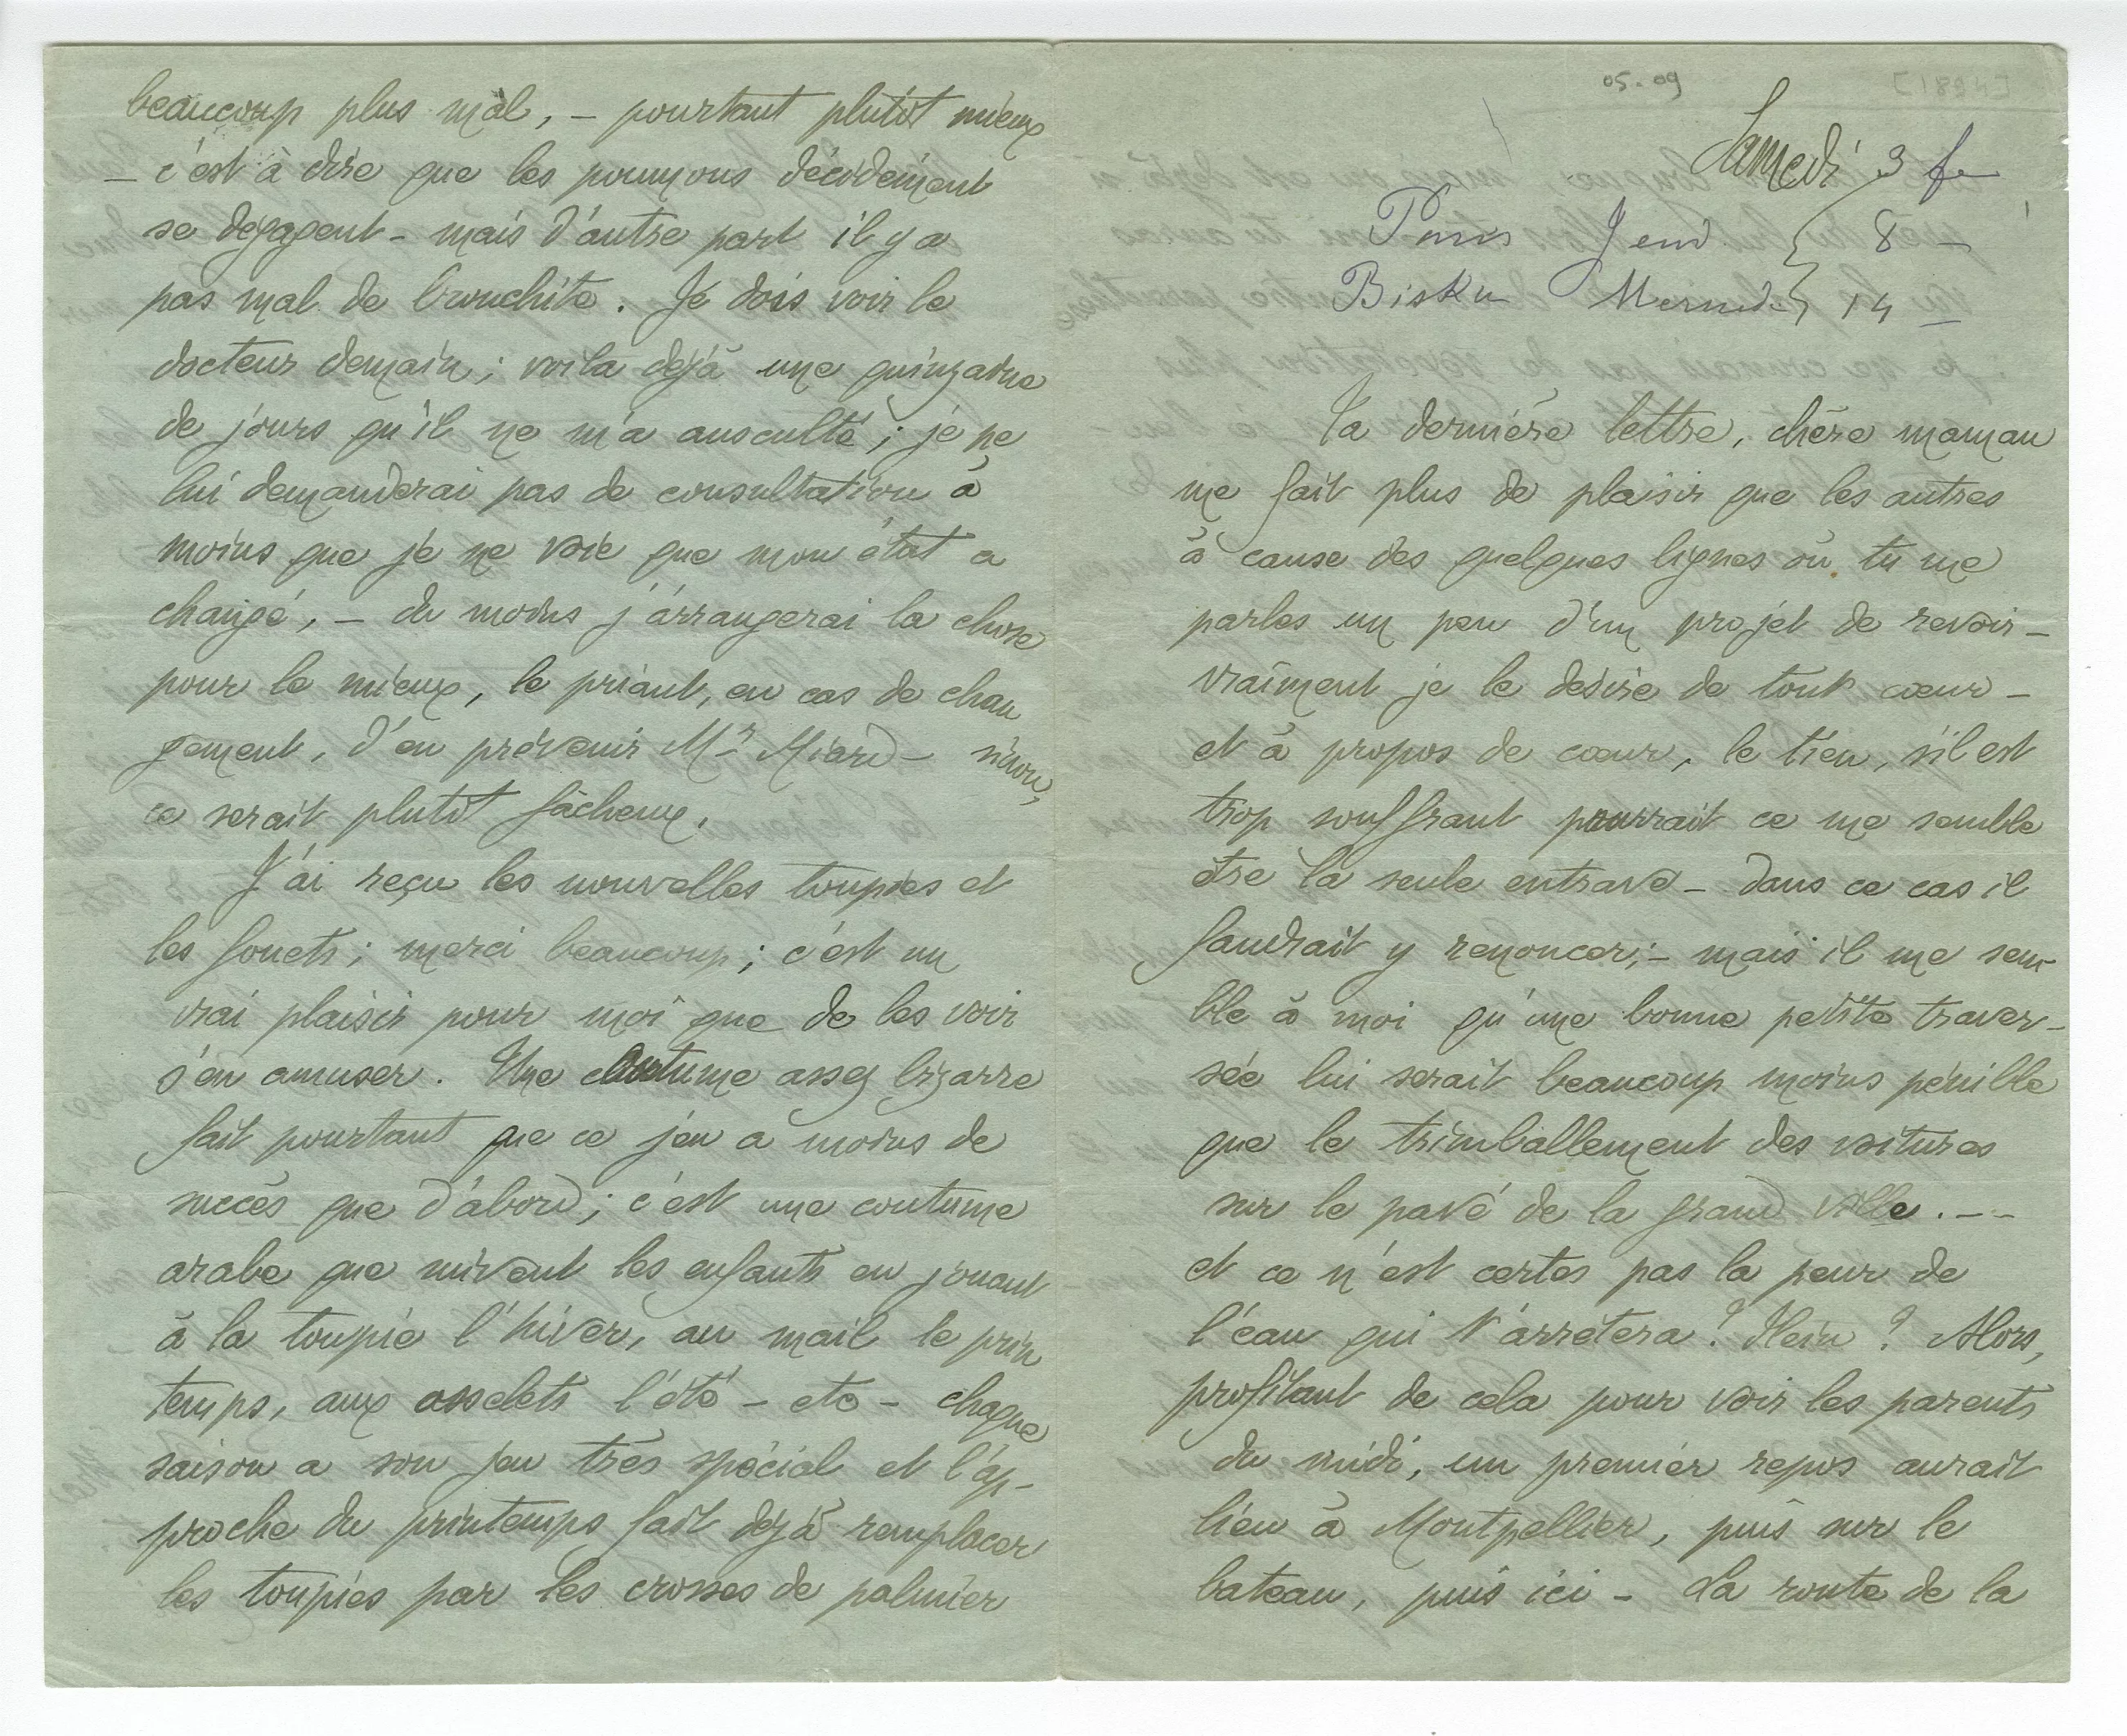 05-09
[1894]
Samedi 3 fe
Paris Jeud. 8 –
Biskra Mercredi 14 –
Ta dernière lettre, chère maman
me fait plus de plaisir que les autres
à cause des quelques lignes où tu me
parles un peu d'un projet de revoir –
vraiment je le désire de tout cœur –
et à propos de cœur, le tien, s'il est
trop souffrant pourrait ce me semble
être la seule entrave – dans ce cas il
faudrait y renoncer; – mais il me sem-
ble à moi qu'une bonne petite traver-
sée lui serait beaucoup moins pénible
que le trimballement des voitures
sur le pavé de la grand ville. – –
et ce n'est certes pas la peur de
l'eau qui t'arrêtera? Hein? Alors,
profitant de cela pour voir les parents
du midi, un premier repos aurait
lieu à Montpellier, puis sur le
bateau, puis ici – La route de la
beaucoup plus mal, – pourtant plutôt mieux
– c'est à dire que les poumons décidément
se dégagent – mais d'autre part il y a
pas mal de bronchite. Je dois voir le
docteur demain; voila déjà une quinzaine
de jours qu'il ne m'a ausculté; je ne
lui demanderai pas de consultation à
moins que je ne voie que mon état a
changé, – du moins j'arrangerai la chose
pour le mieux, le priant, en cas de chan
gement, d'en prévenir Mr Miard – sinon,
ce serait plutôt fâcheux.
J'ai reçu les nouvelles toupies et
les fouets; merci beaucoup; c'est un
vrai plaisir pour moi que de les voir
s'en amuser. Une coutume assez bizarre
fait pourtant que ce jeu a moins de
succès que d'abord; c'est une coutume
arabe que suivent les enfants en jouant
à la toupie l'hiver, au mail le prin
temps, aux osselets l'été – etc – chaque
saison a son jeu très spécial et l'ap-
proche du printemps fait déjà remplacer
les toupies par les crosses de palmier